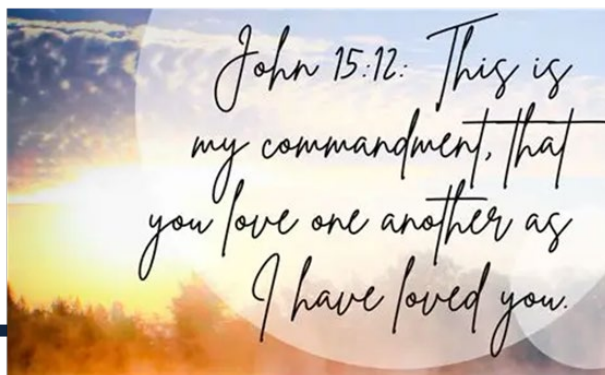 John 15:12: This is
my commandment, that
you love one another as
I have loved you.